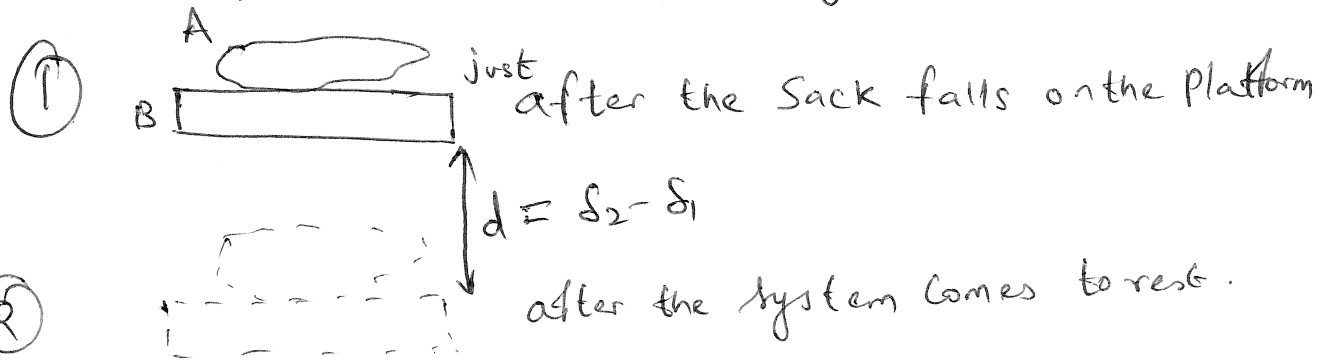 A
① just after the Sack falls on the Platform
B
d = δ₂ - δ₁
② after the System Comes to rest.